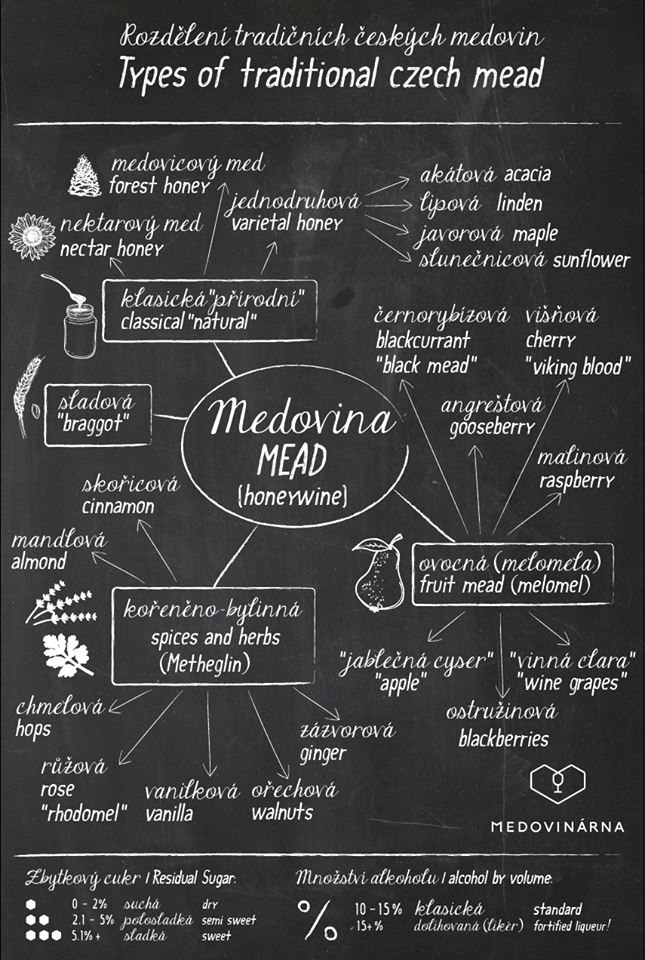 Rozdělení tradičních českých medovin
Types of traditional czech mead
medovicový med
forest honey
jednodruhová
varietal honey
akátová acacia
lipová linden
javorová maple
slunečnicová sunflower
nektarový med
nectar honey
klasická "přírodní"
classical "natural"
černorybízová
blackcurrant
"black mead"
višňová
cherry
"viking blood"
sladová
"braggot"
Medovina
MEAD
(honeywine)
angreštová
gooseberry
malinová
raspberry
skořicová
cinnamon
mandlová
almond
ovocná (melomela)
fruit mead (melomel)
kořeněno-bylinná
spices and herbs
(Metheglin)
"jablečná cyser"
"apple"
"vinná clara"
"wine grapes"
ostružinová
blackberries
chmelová
hops
růžová
rose
"rhodomel"
vanilková
vanilla
ořechová
walnuts
zázvorová
ginger
MEDOVINÁRNA
Zbytkový cukr | Residual Sugar:
0 - 2% suchá dry
2.1 - 5% polosladká semi sweet
5.1% + sladká sweet
Množství alkoholu | alcohol by volume:
%
10 - 15 % klasická standard
15+ % dolihovaná (likér) fortified liqueur!